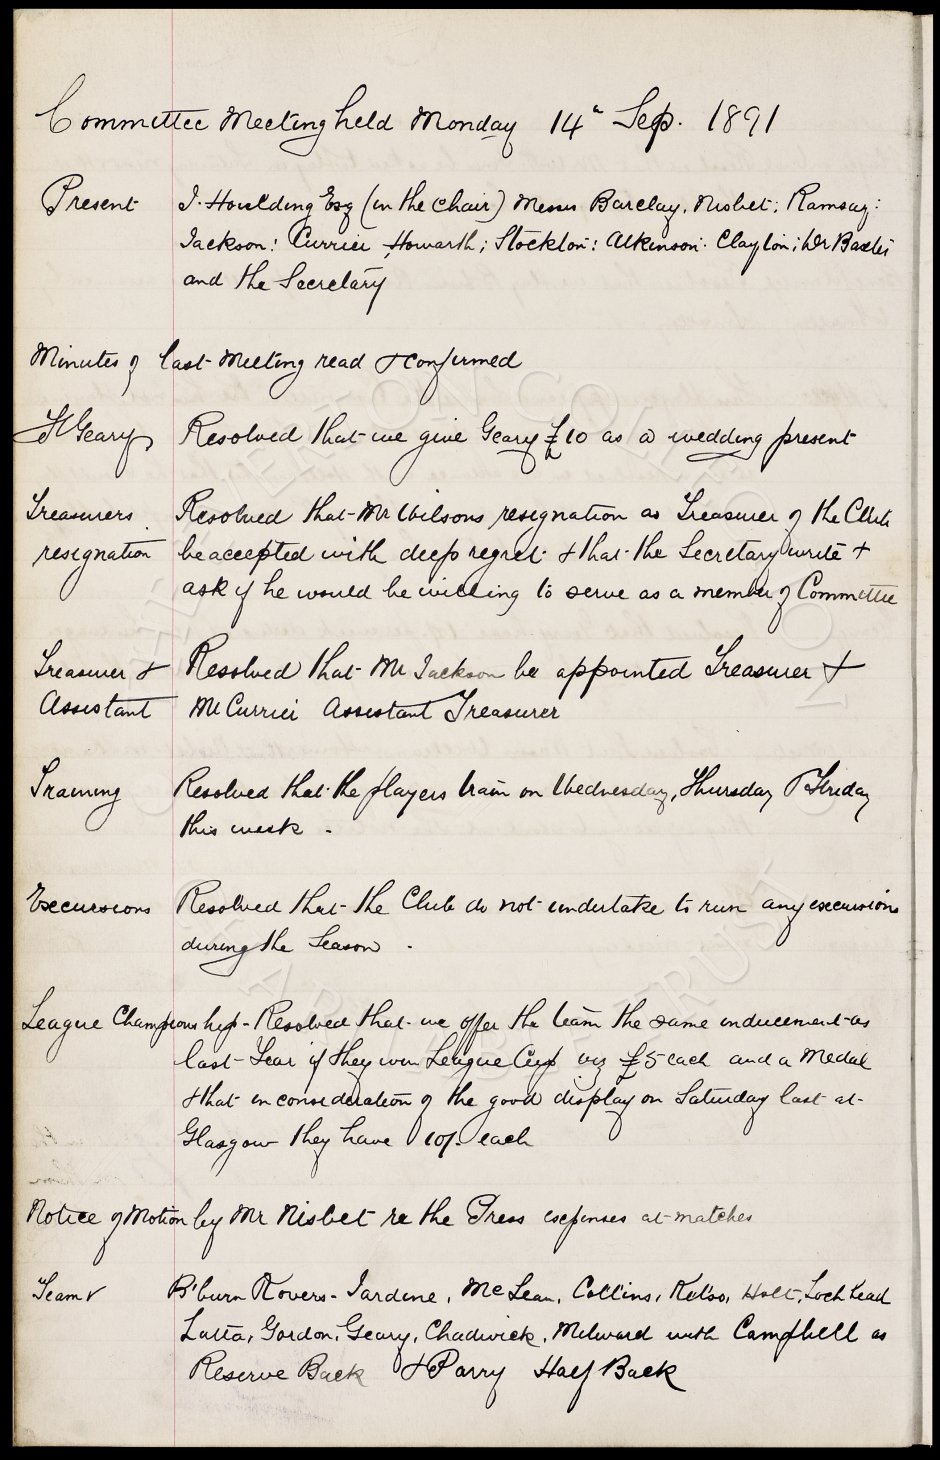 Committee Meeting held Monday 14th Sep. 1891
Present J. Houlding Esq (in the chair) Messrs Barclay, Nisbet; Ramsay;
Jackson: Currier, Howarth; Stockton: Atkinson. Clayton; Dr Baxter
and the Secretary
Minutes of last Meeting read & confirmed
Geary Resolved that we give Geary £10 as a wedding present
Treasurers Resolved that Mr Wilsons resignation as Treasurer of the Club
resignation be accepted with deep regret & that the Secretary write &
ask if he would be willing to serve as a member of Committee
Treasurer & Resolved that Mr Jackson be appointed Treasurer &
Assistant Mr Currier Assistant Treasurer
Training Resolved that the players train on Wednesday, Thursday & Friday
this week -
Excursions Resolved that the Club do not undertake to run any excursions
during the Season .
League Championship - Resolved that we offer the team the same inducement as
last Year if they win League Cup viz £5 each and a Medal
& that in consideration of the good display on Saturday last at
Glasgow they have 10/- each
Notice of Motion by Mr Nisbet re the Press expenses at matches
Team v B'burn Rovers - Jardine, McLean, Collins, Kelso, Holt, Lochhead
Latta, Gordon, Geary, Chadwick, Milward with Campbell as
Reserve Back & Parry Half Back
EVERTON COLLECTION
CHARITABLE TRUST